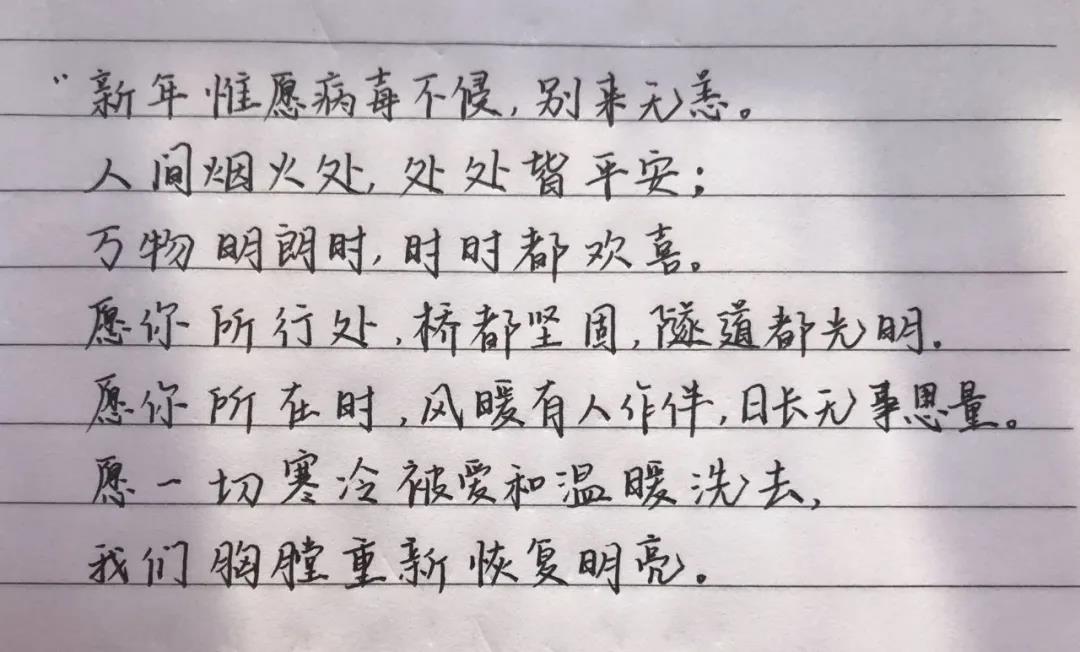 “新年惟愿病毒不侵,别来无恙。
人间烟火处,处处皆平安;
万物明朗时,时时都欢喜。
愿你所行处,桥都坚固,隧道都光明.
愿你所在时,风暖有人作伴,日长无事思量。
愿一切寒冷被爱和温暖洗去,
我们胸膛重新恢复明亮。